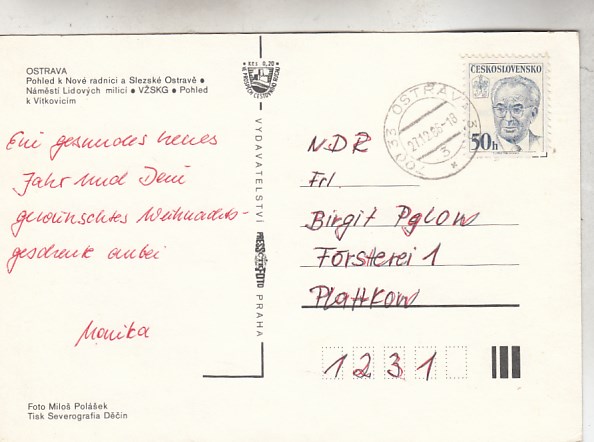 OSTRAVA
Pohled k Nové radnici a Slezské Ostravě ●
Náměstí Lidových milicí ● VŽSKG ● Pohled
k Vítkovicím
Ein gesundes neues
Jahr und Dein
gewünschtes Weihnachts-
geschenk anbei
Monika
Foto Miloš Polášek
Tisk Severografia Děčín
KčS 0,20
VE PROSPĚCH CESTOVNÍHO RUCHU
VYDAVATELSTVÍ
PRESSFOTO
PRAHA
OSTRAVA 3
27.12.88-18
700 33
3
ČESKOSLOVENSKO
50h
NDR
Frl.
Birgit Pglow
Försterei 1
Plattkow
1231